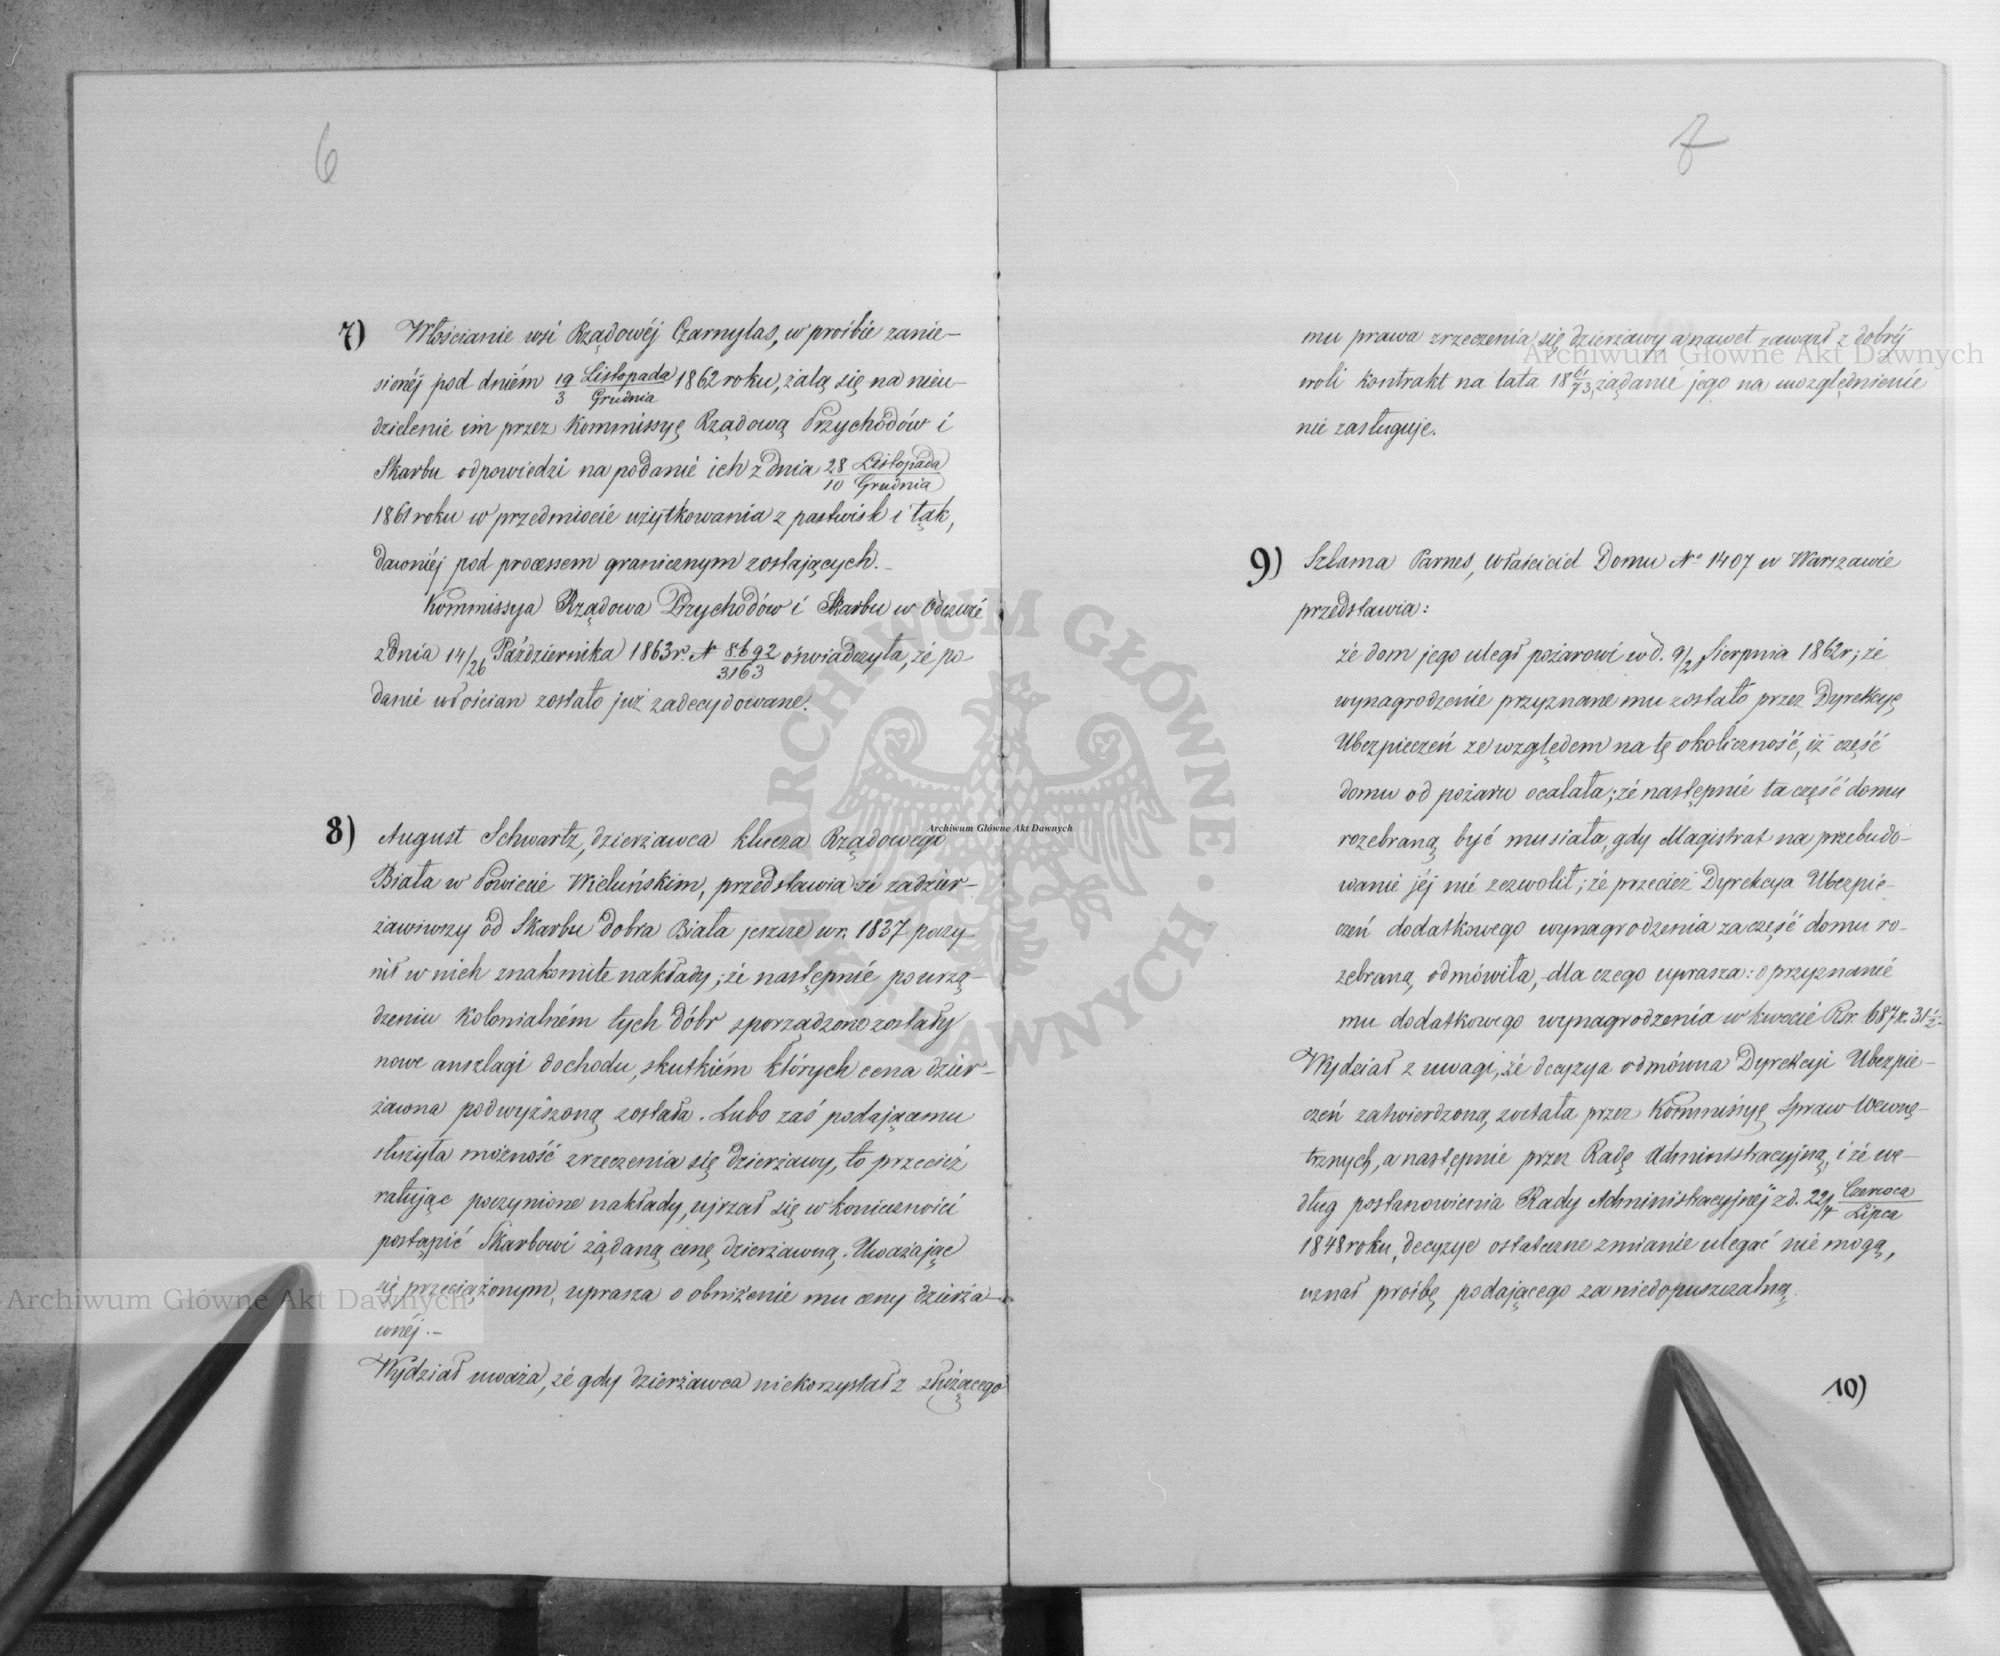 6
7) Włościanie wsi Rządowéj Czarnylas, w prośbie zanie-
sionéj pod dniém 19/3 Listopada/Grudnia 1862 roku, żalą się na nieu-
dzielenie im przez Kommissyę Rządową Przychodów i
Skarbu odpowiedzi na podanié ich z dnia 28/10 Listopada/Grudnia
1861 roku w przedmiocie użytkowania z pastwisk i łąk,
dawniéj pod processem granicznym zostających.-
Kommissya Rządowa Przychodów i Skarbu w Odezwie
z dnia 14/26 Października 1863 r. N 8692/3163 oświadczyła, że po-
danié włościan zostało już zadecydowane.
8) August Schwartz, dzierżawca klucza Rządowego
Biała w Powiecie Wieluńskim, przedstawia że zadzier-
żawiwszy od Skarbu dobra Biała jeszcze w r. 1837 poczy-
nił w nich znakomite nakłady; że następnié po urzą-
dzeniu kolonialném tych dóbr sporządzone zostały
nowe anszlagi dochodu, skutkiém których cena dzier-
żawna podwyższoną została. Lubo zaś podającemu
służyła możność zrzeczenia się dzierżawy, to przecież
ratując poczynione nakłady, ujrzał się w konieczności
postąpić Skarbowi żądaną cenę dzierżawną. Uważając
się przeciążonym, uprasza o obniżenie mu ceny dzierża-
wnéj.-
Wydział uważa, że gdy dzierżawca nie korzystał z służącego
7
mu prawa zrzeczenia się dzierżawy a nawet zawarł z dobréj
woli kontrakt na lata 1861/73, żądanié jego na uwzględnienie
nie zasługuje.
9) Szlama Parnes, właściciel Domu No 1407 w Warszawie
przedstawia:
że dom jego uległ pożarowi w d. 9/21 Sierpnia 1862 r; że
wynagrodzenie przyznane mu zostało przez Dyrekcyę
Ubezpieczeń ze względem na tę okoliczność, iż część
domu od pożaru ocalała; że następnié ta część domu
rozebraną być musiała, gdy Magistrat na przebudo-
wanie jéj nié zezwolił; że przecież Dyrekcya Ubezpie-
czeń dodatkowego wynagrodzenia za część domu ro-
zebraną odmówiła, dla czego uprasza: o przyznanié
mu dodatkowego wynagrodzenia w kwocie Rsr 687 k. 31½.
Wydział z uwagi, że decyzya odmówna Dyrekcyi Ubezpie-
czeń zatwierdzoną została przez Kommissyę Spraw Wewnę-
trznych, a następnie przez Radę Administracyjną, i że we-
dług postanowienia Rady Administracyjnéj z d. 22/4 Czerwca/Lipca
1848 roku, decyzye ostateczne zmianie ulegać nié mogą,
uznał prośbę podającego za niedopuszczalną.
10)
Archiwum Główne Akt Dawnych
Archiwum Główne Akt Dawnych
Archiwum Główne Akt Dawnych
ARCHIWUM GŁÓWNE AKT DAWNYCH